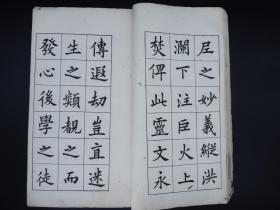 尼之妙義縱洪
瀾下注巨火上
焚俾此靈文永
傳遐劫豈直迷
生之類覩之而
發心後學之徒